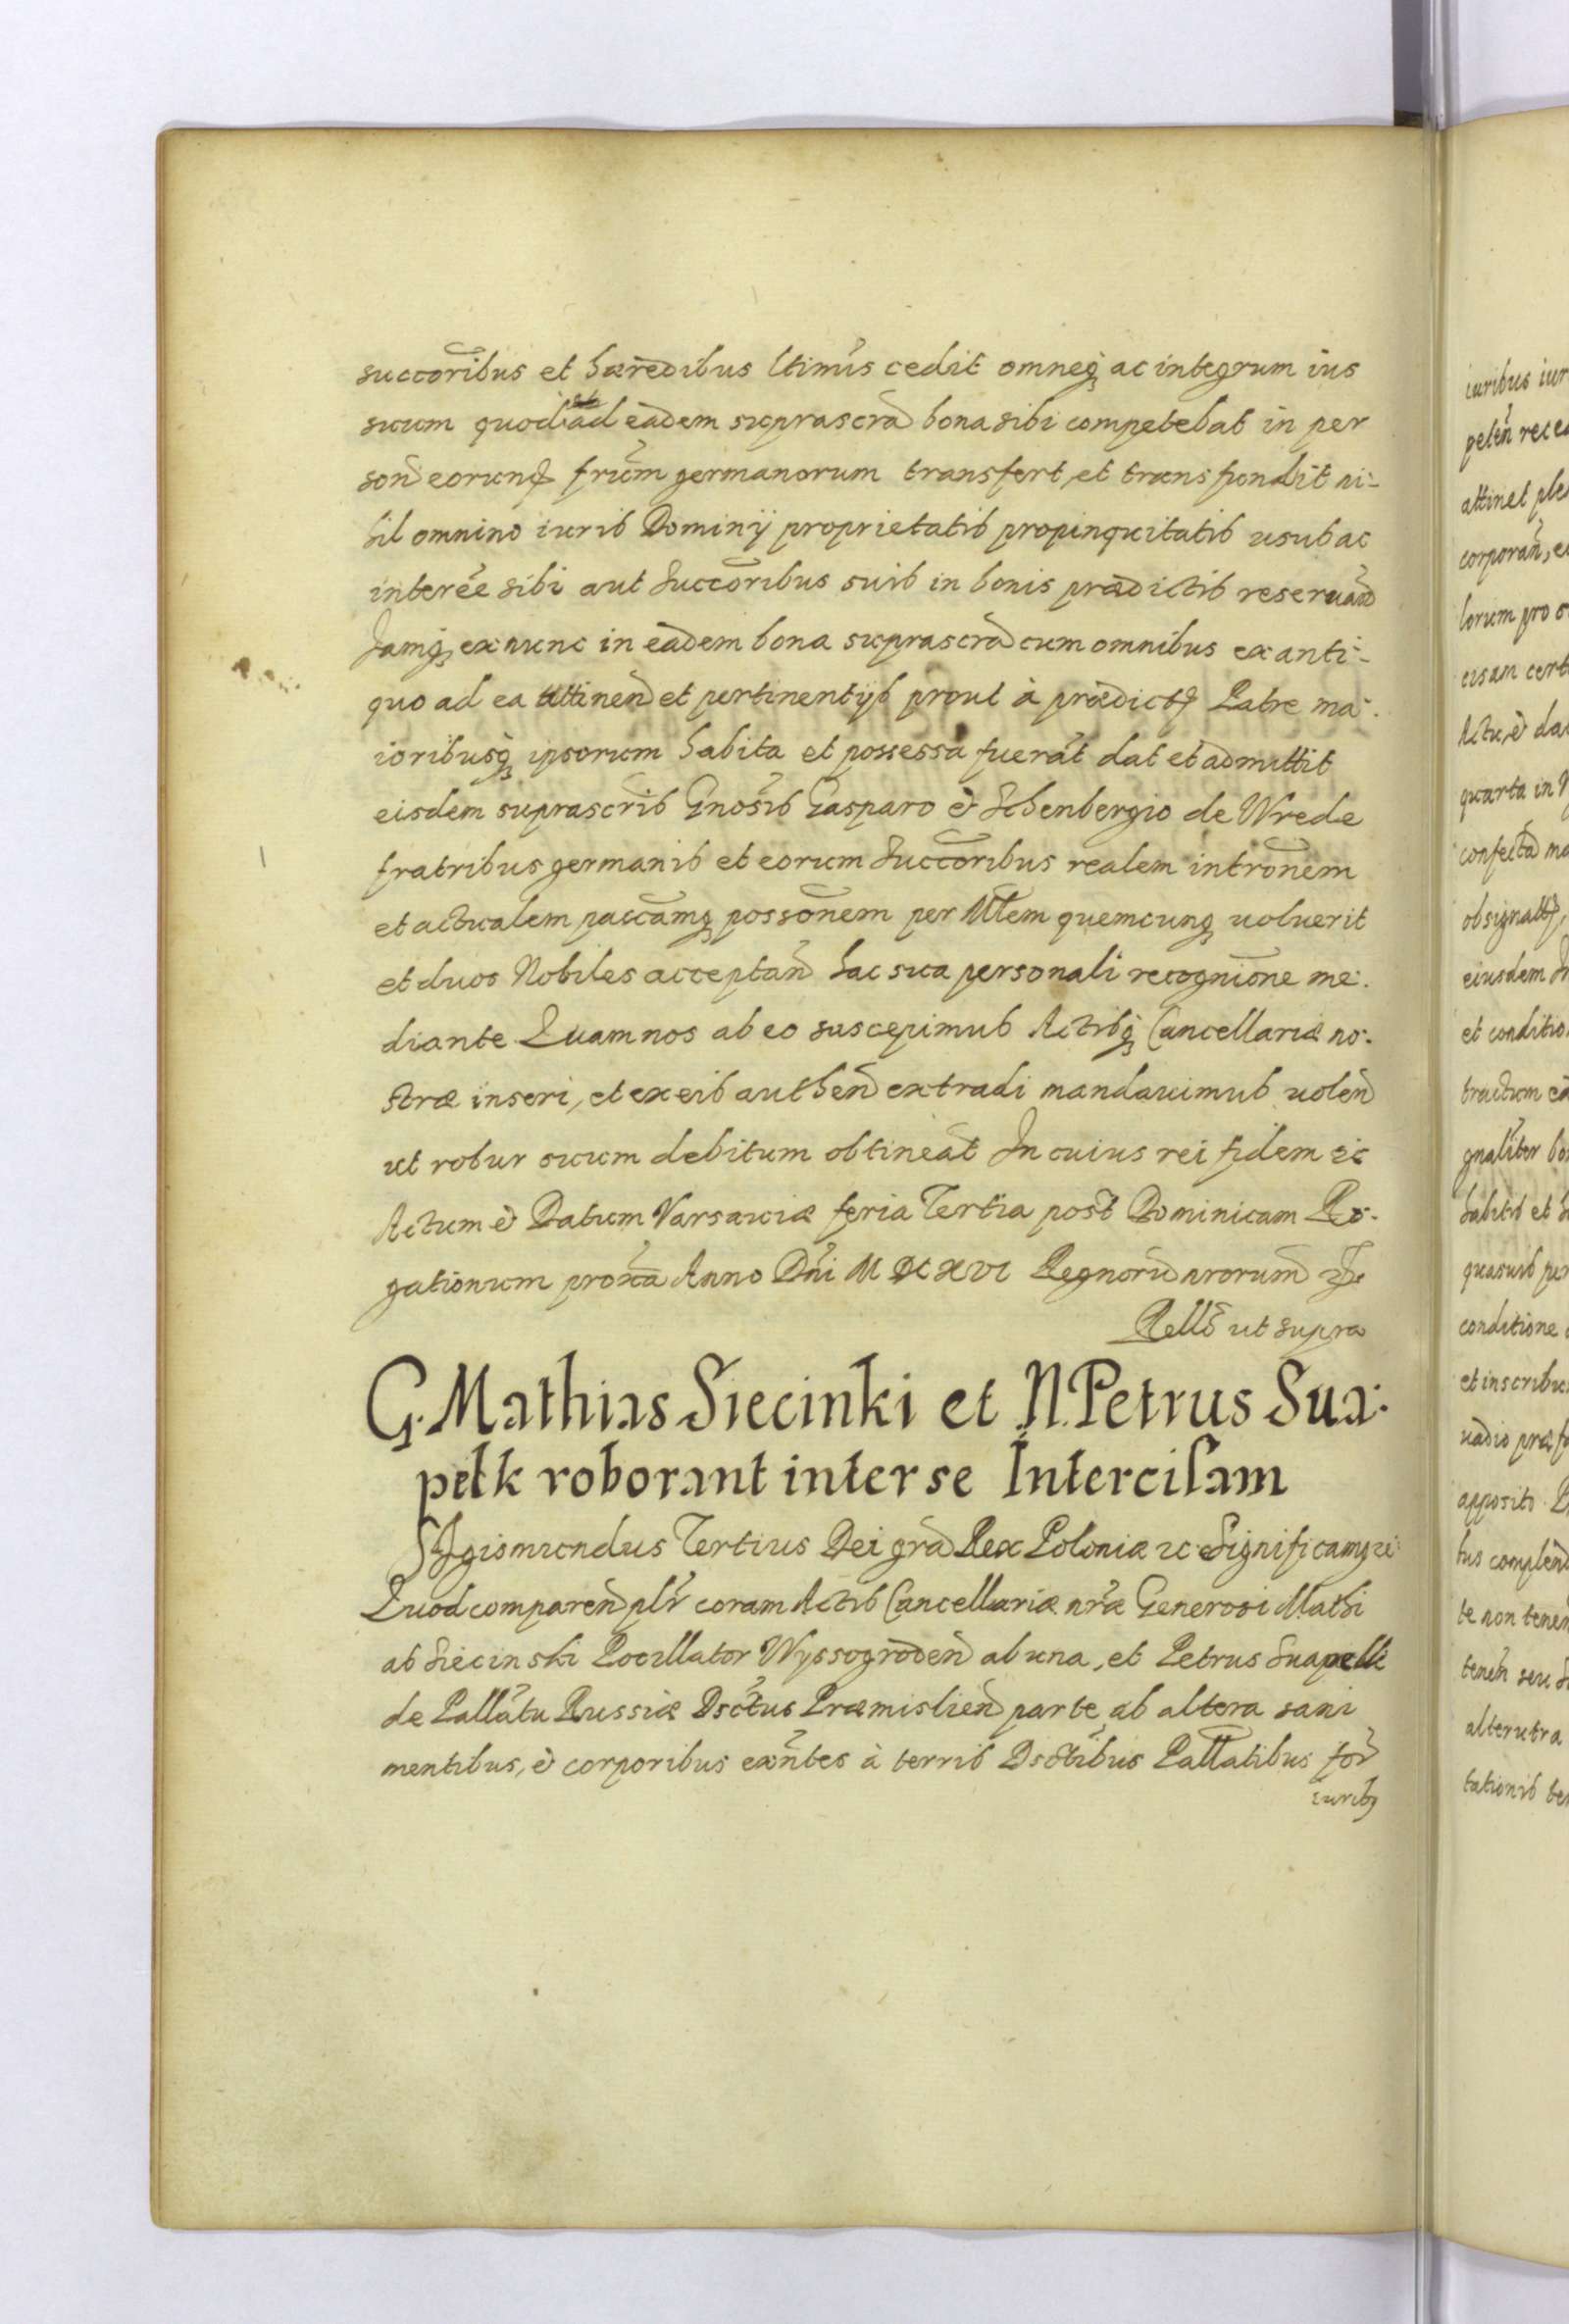 succoribus et hæredibus ltimis cedit omneq; ac integrum ius
suum quod ad eadem suprascra bona sibi competebat in per
son eorund frum germanorum transfert, et transfundit ni-
hil omnino iuris Dominij proprietatis propinquitatis usus ac
interée sibi aut Succoribus suis in bonis prædictis reseruand
Jamq; ex nunc in eadem bona suprascra cum omnibus ex anti-
quo ad ea attinen et pertinentijs prout à prædicto Patre ma-
ioribusq; ipsorum habita et possessa fuerat dat et admittit
eisdem suprascris Gnosis Gasparo et Schenbergio de Wrede
fratribus germanis et eorum Succoribus realem intronem
et actualem paccamq; possonem per Mlem quemcunq; uoluerit
et duos Nobiles acceptan hac sua personali recognione me-
diante Quam nos ab eo suscepimus Actibq; Cancellariæ no-
stræ inseri, et ex eis authen extradi mandauimus uolen
ut robur suum debitum obtineat In cuius rei fidem etc
Actum et Datum Varsauiæ feria Tertia post Dominicam Ro-
gationum proxa Anno Dni MDCXVI Regnoru nrorum
Rello ut supra
G. Mathias Siecinki et N. Petrus Sua-
pelk roborant inter se Intercisam
Sigismundus Tertius Dei gra Rex Poloniæ etc Significamq; etc
Quod comparen plr coram Actis Cancellariæ nræ Generosi Mathi
as Siecinski Pocillator Wyssogroden ab una, et Petrus Suapelk
de Pallatu Russiæ Dsctus Præmislien parte ab altera sani
mentibus, et corporibus exntes à terris Dsctibus Pallatibus for
iurib;
iuribus iur
peten rece
attinet ple
corporan, e
lorum pro
cisam cert
Actu et da
quarta in
confecta ma
obsignat
eiusdem In
et conditio
tractum ea
gnaliter bo
habitis et
quasuis per
conditione
et inscribu
uadio præf
apposito
tus complen
te non tenen
tenen seu
alterutra
tationis te